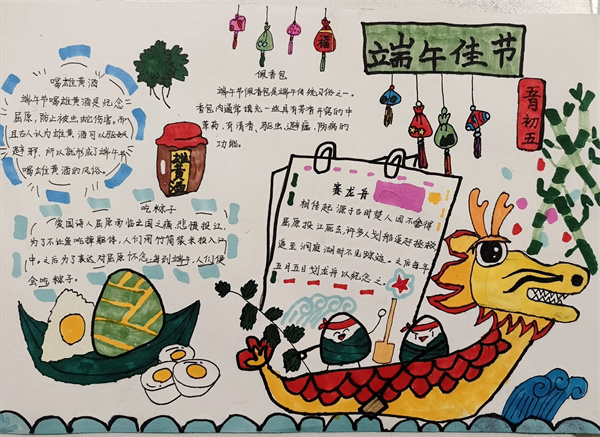 端午佳节
五月初五
福
佩香包
端午节佩香包是端午传统习俗之一。
香包内通常填充一些具有芳香开窍的中
草药,有清香、驱虫、避瘟、防病的
功能。
喝雄黄酒
端午节喝雄黄酒是纪念
屈原,防止被虫蛇伤害。而
且古人认为雄黄酒可以驱妖
避邪,所以就形成了端午节
喝雄黄酒的风俗。
雄黄酒
吃粽子
爱国诗人屈原面临亡国之痛,悲愤投江,
为了不让鱼吃掉躯体,人们用竹筒装米投入江
中。之后为了表达对屈原怀念,每到端午,人们便
会吃粽子。
赛龙舟
相传起源于古时楚人因不舍得
屈原投江死去,许多人划船追赶拯救
追至洞庭湖时不见踪迹。之后每年
五月五日划龙舟以纪念之。